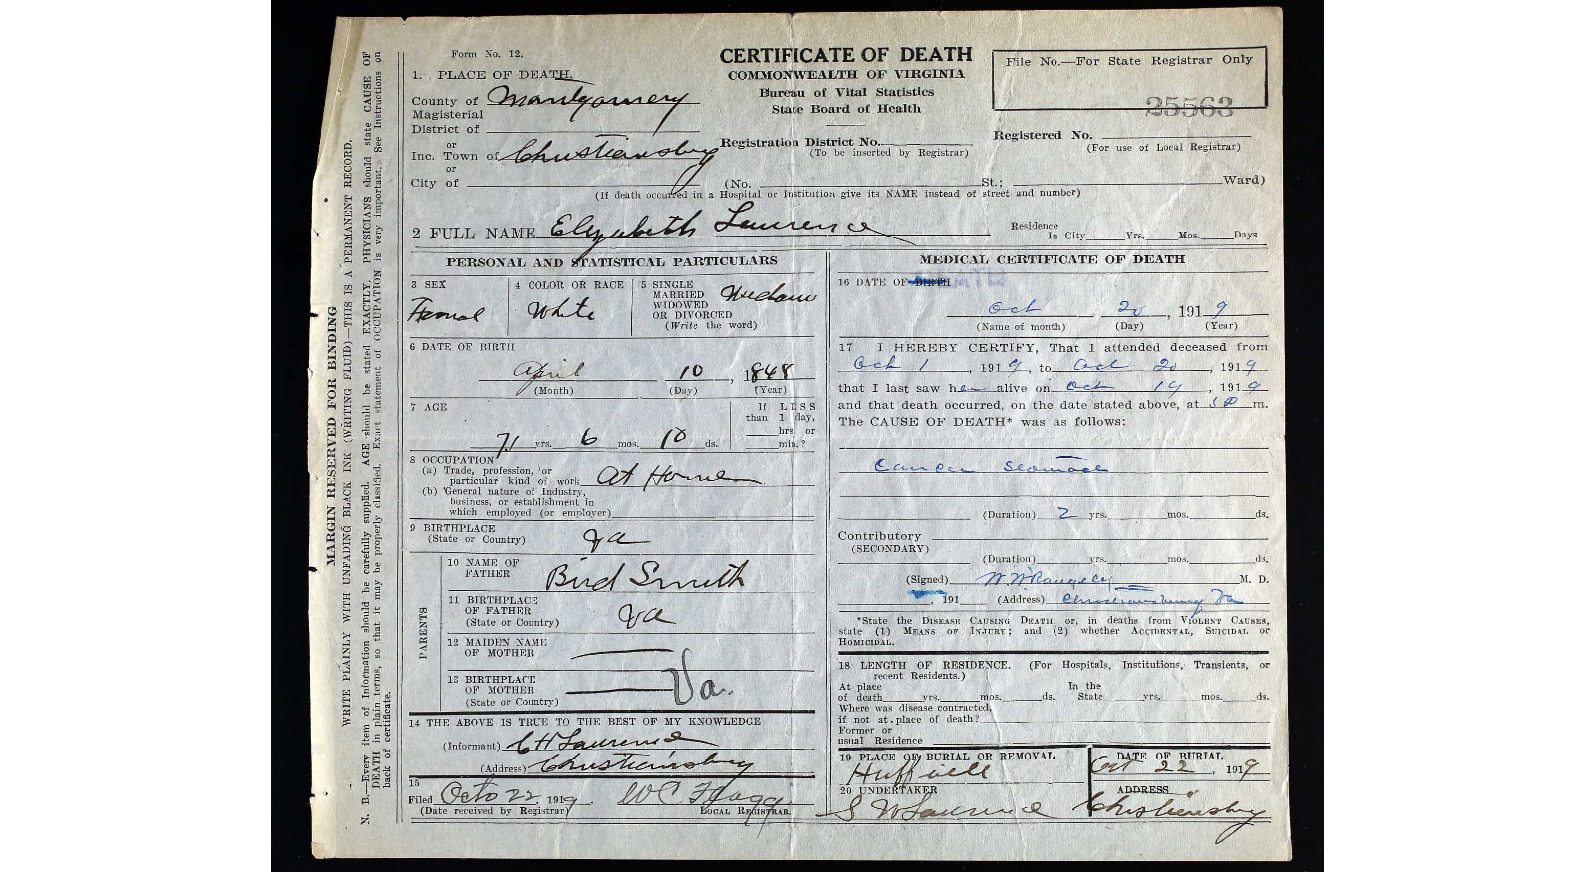 Form No. 12.
CERTIFICATE OF DEATH
COMMONWEALTH OF VIRGINIA
Bureau of Vital Statistics
State Board of Health
File No.—For State Registrar Only
25563
1. PLACE OF DEATH.
County of Montgomery
Magisterial
District of
or
Inc. Town of Christiansburg
or
City of
Registration District No.
(To be inserted by Registrar)
Registered No.
(For use of Local Registrar)
(No. St.; Ward)
(If death occurred in a Hospital or Institution give its NAME instead of street and number)
2 FULL NAME Elizabeth Lawrence
Residence
Is City Yrs. Mos. Days
PERSONAL AND STATISTICAL PARTICULARS
3 SEX
Femal
4 COLOR OR RACE
White
5 SINGLE
MARRIED
WIDOWED
OR DIVORCED
(Write the word)
Widow
6 DATE OF BIRTH
April 10, 1848
(Month) (Day) (Year)
7 AGE
71 yrs. 6 mos. 10 ds.
If LESS
than 1 day,
hrs or
min.?
8 OCCUPATION
(a) Trade, profession, or
particular kind of work At Home
(b) General nature of Industry,
business, or establishment in
which employed (or employer)
9 BIRTHPLACE
(State or Country) Va
PARENTS
10 NAME OF
FATHER Bird Smith
11 BIRTHPLACE
OF FATHER
(State or Country) Va
12 MAIDEN NAME
OF MOTHER
13 BIRTHPLACE
OF MOTHER
(State or Country) Va.
14 THE ABOVE IS TRUE TO THE BEST OF MY KNOWLEDGE
(Informant) C H Lawrence
(Address) Christiansburg
15
Filed Octo 22, 1919 W C Flagg
(Date received by Registrar) LOCAL REGISTRAR.
MEDICAL CERTIFICATE OF DEATH
16 DATE OF BIRTH DEATH
Oct 20, 1919
(Name of month) (Day) (Year)
17 I HEREBY CERTIFY, That I attended deceased from
Oct 1, 1919, to Oct 20, 1919
that I last saw her alive on Oct 19, 1919
and that death occurred, on the date stated above, at P m.
The CAUSE OF DEATH* was as follows:
Cancer Stomach
(Duration) 2 yrs. mos. ds.
Contributory
(SECONDARY)
(Duration) yrs. mos. ds.
(Signed) W. W. Rangeley M. D.
, 191 (Address) Christiansburg Va
*State the DISEASE CAUSING DEATH or, in deaths from VIOLENT CAUSES,
state (1) MEANS OF INJURY; and (2) whether ACCIDENTAL, SUICIDAL or
HOMICIDAL.
18 LENGTH OF RESIDENCE. (For Hospitals, Institutions, Transients, or
recent Residents.)
At place In the
of death yrs. mos. ds. State yrs. mos. ds.
Where was disease contracted,
if not at place of death?
Former or
usual Residence
19 PLACE OF BURIAL OR REMOVAL.
Huffville
DATE OF BURIAL
Oct 22, 1919
20 UNDERTAKER
S W Lawrence
ADDRESS
Christiansburg
MARGIN RESERVED FOR BINDING
WRITE PLAINLY WITH UNFADING BLACK INK (WRITING FLUID)—THIS IS A PERMANENT RECORD.
N. B.—Every item of Information should be carefully supplied. AGE should be stated EXACTLY. PHYSICIANS should state CAUSE OF
DEATH in plain terms, so that it may be properly classified. Exact statement of OCCUPATION is very important. See Instructions on
back of certificate.